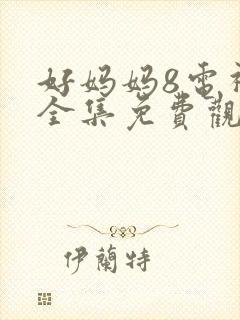 好妈妈8电视
全集免費觀
伊蘭特